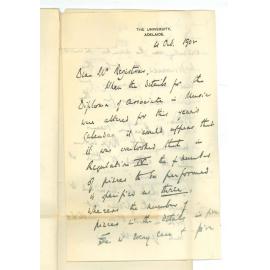 THE UNIVERSITY,
ADELAIDE.
4 Oct. 1902
Dear Mr Registrar,
When the details for the
Diploma of Associate in Music
was altered for this year's
Calendar it would appear that
it was overlooked that in
Regulation IV the number
of pieces to be performed
is specified as three.
Whereas the number of
pieces in the details is five
in every case &